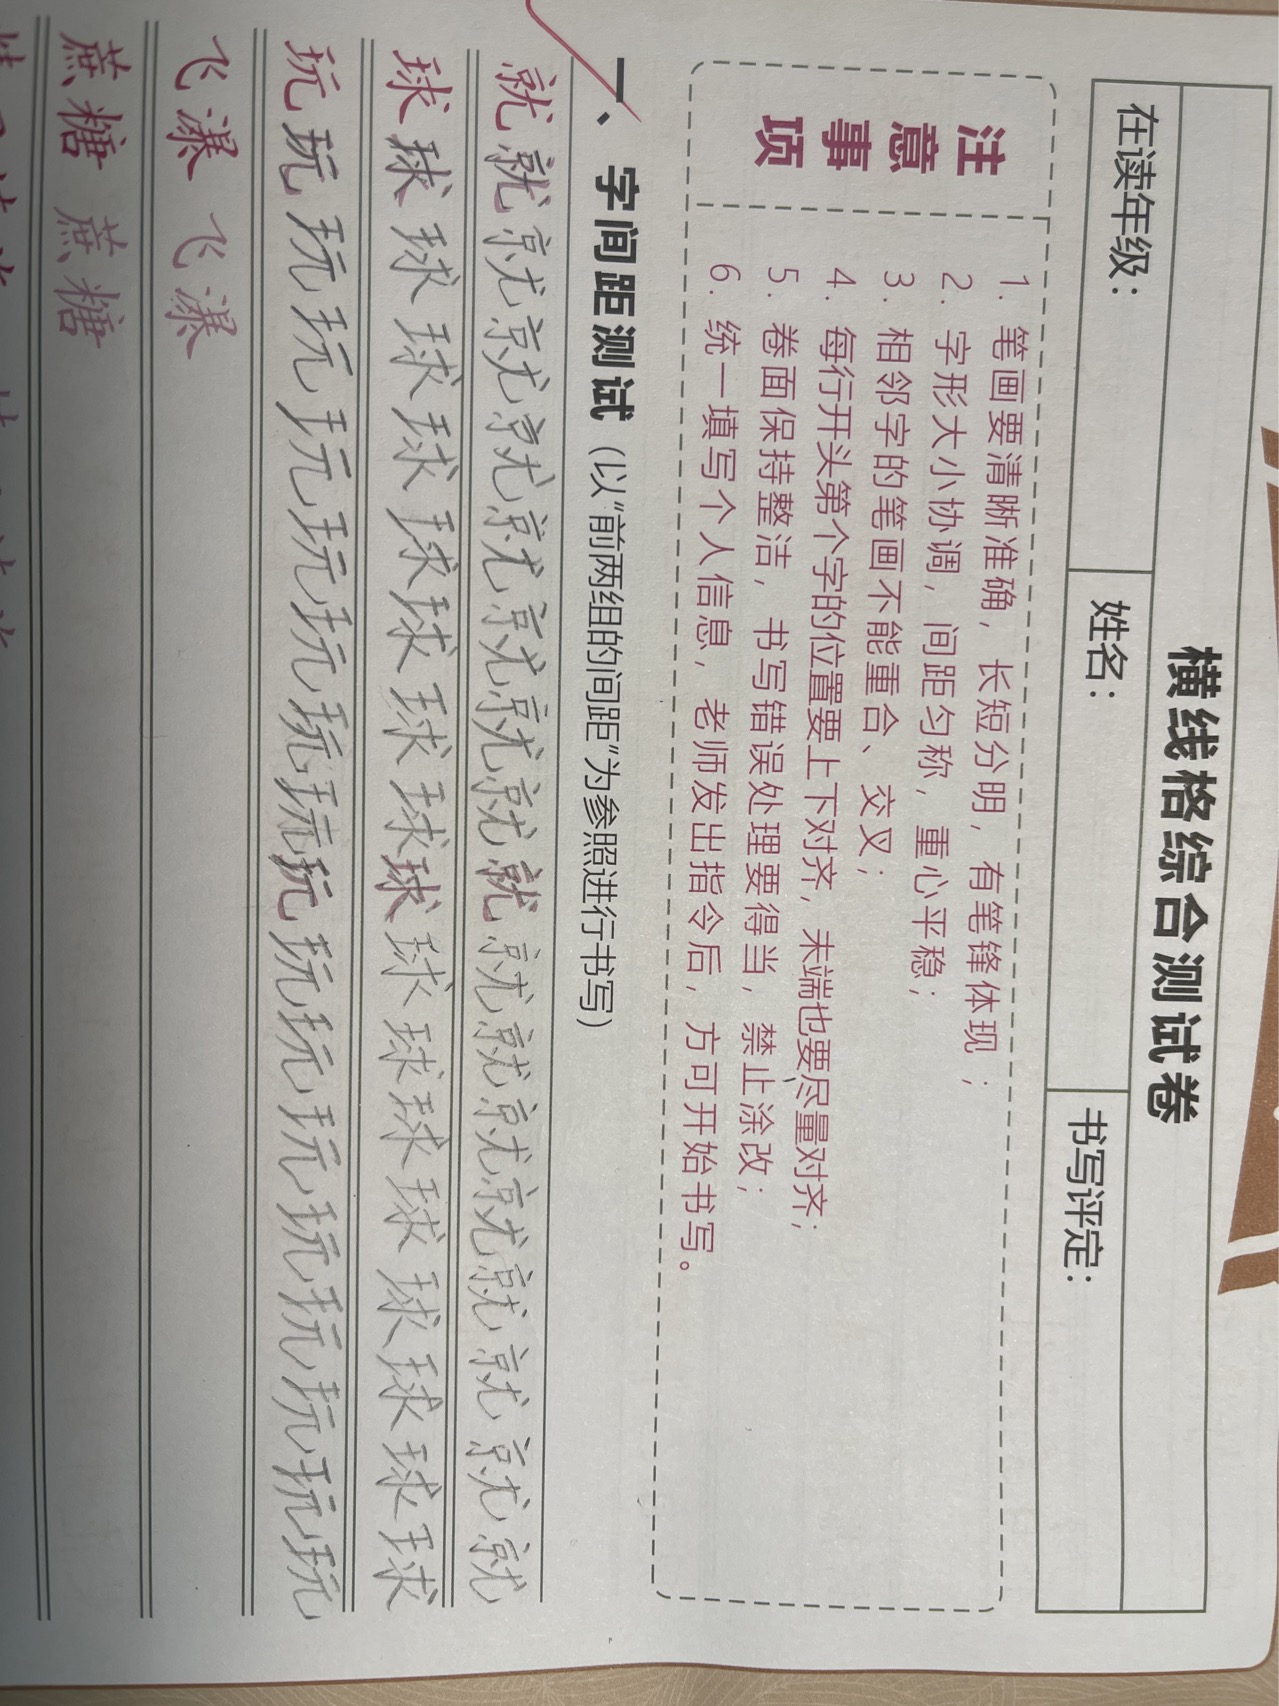 横线格综合测试卷
在读年级： 姓名： 书写评定：
注意事项
1. 笔画要清晰准确，长短分明，有笔锋体现；
2. 字形大小协调，间距匀称，重心平稳；
3. 相邻字的笔画不能重合、交叉；
4. 每行开头第个字的位置要上下对齐，末端也要尽量对齐；
5. 卷面保持整洁，书写错误处理要得当，禁止涂改；
6. 统一填写个人信息，老师发出指令后，方可开始书写。
一、字间距测试（以“前两组的间距”为参照进行书写）
就就就就就就就就就就就就就就就就就就
球球球球球球球球球球球球球球球球球球
玩玩玩玩玩玩玩玩玩玩玩玩玩玩玩玩玩玩
飞瀑 飞瀑
蔗糖 蔗糖